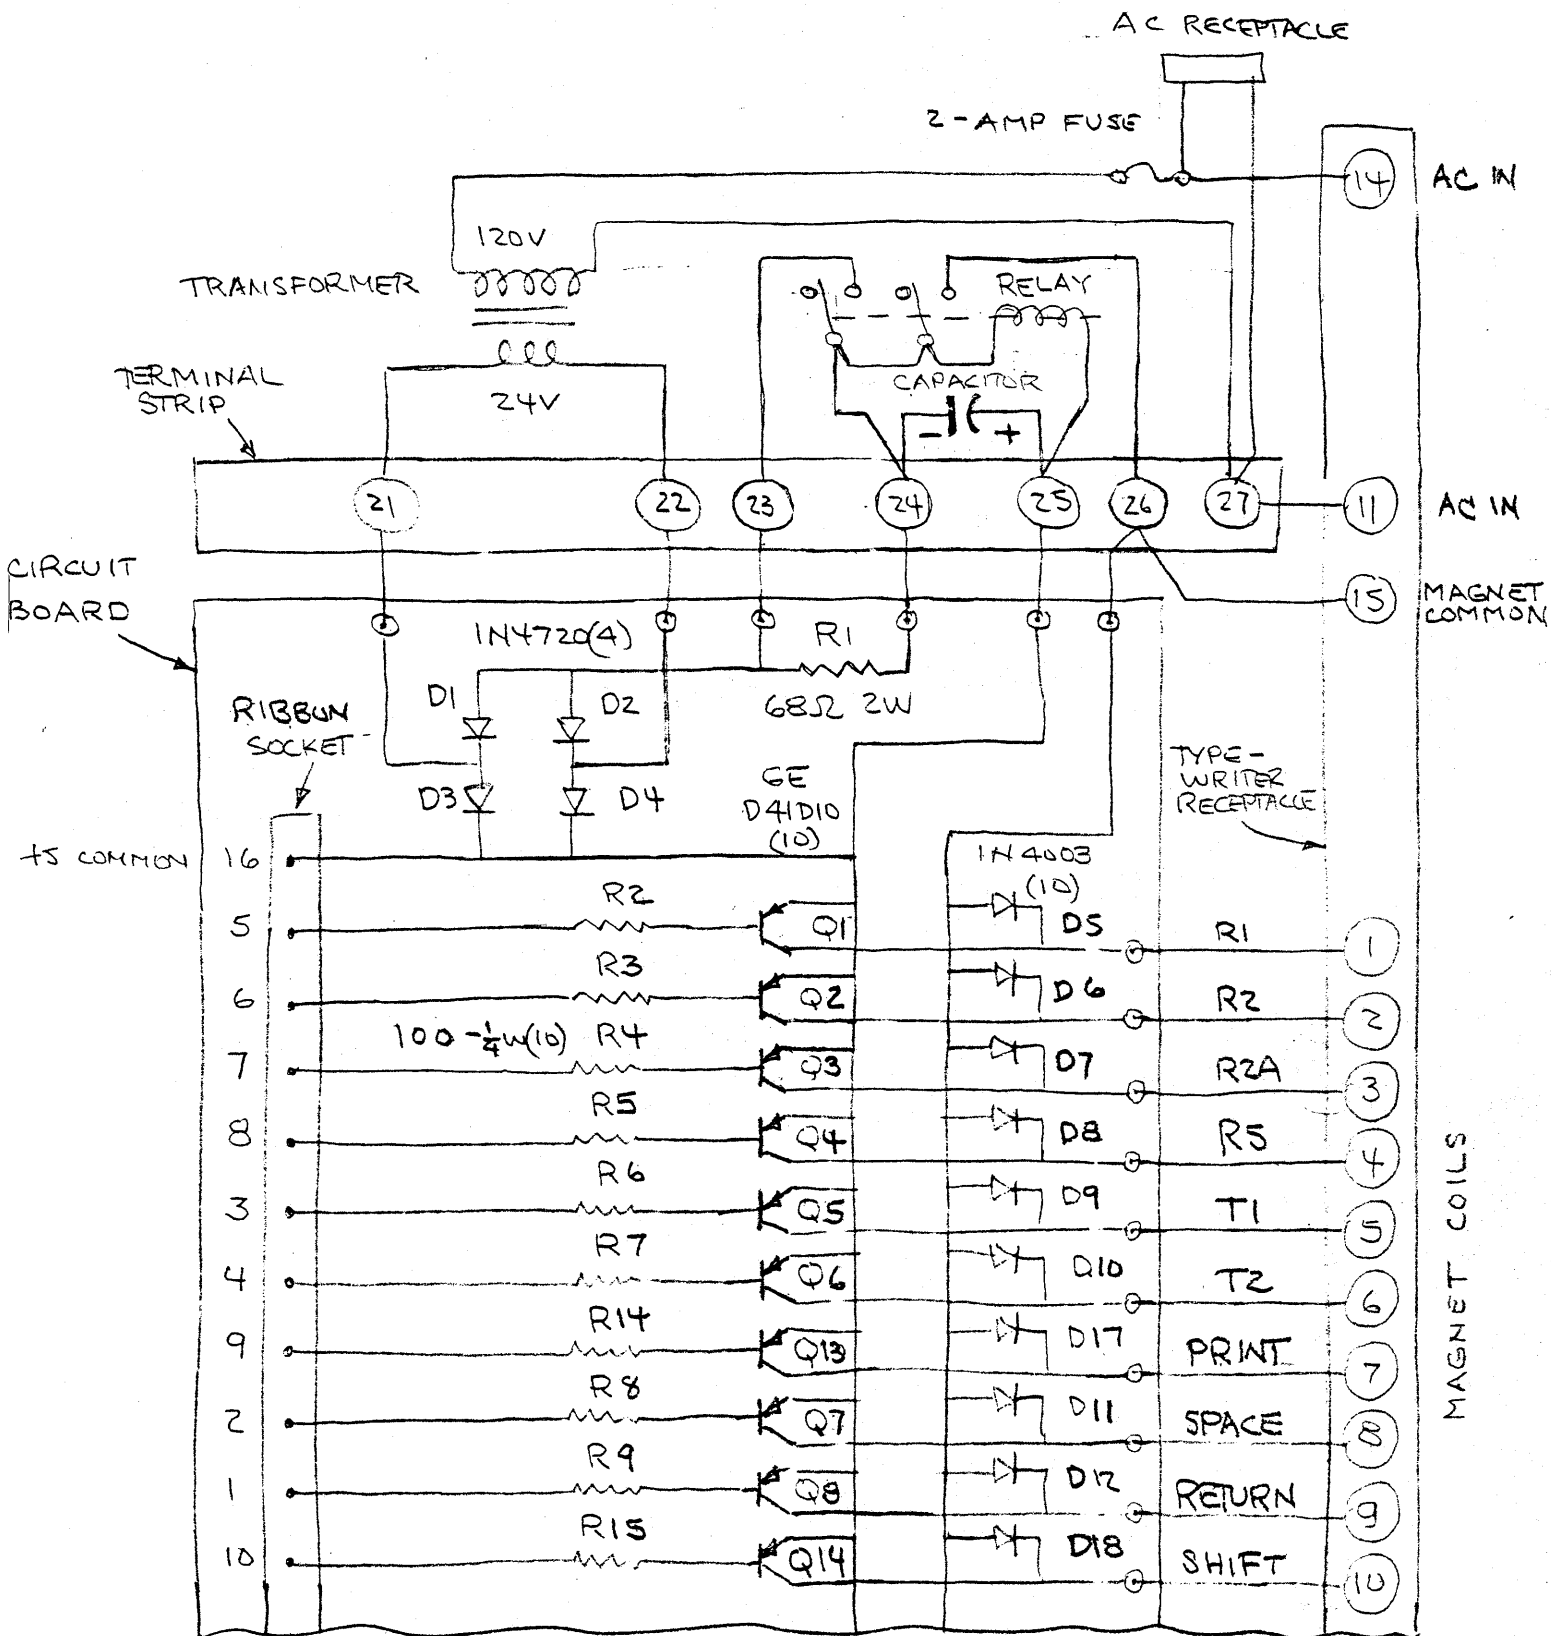 AC RECEPTACLE
2-AMP FUSE
14 AC IN
120V
TRANSFORMER
RELAY
TERMINAL
STRIP
24V
CAPACITOR
- +
21 22 23 24 25 26 27 11 AC IN
CIRCUIT
BOARD
15 MAGNET
COMMON
1N4720(4) R1
D1 D2 68Ω 2W
RIBBUN
SOCKET
TYPE-
WRITER
RECEPTACLE
D3 D4
GE
D41D10
(10)
+5 COMMON 16
1N4003
(10)
5 R2 Q1 D5 R1 1
6 R3 Q2 D6 R2 2
100-¼W(10)
7 R4 Q3 D7 R2A 3
8 R5 Q4 D8 R5 4
3 R6 Q5 D9 T1 5
4 R7 Q6 D10 T2 6
9 R14 Q13 D17 PRINT 7
2 R8 Q7 D11 SPACE 8
1 R9 Q8 D12 RETURN 9
10 R15 Q14 D18 SHIFT 10
MAGNET COILS